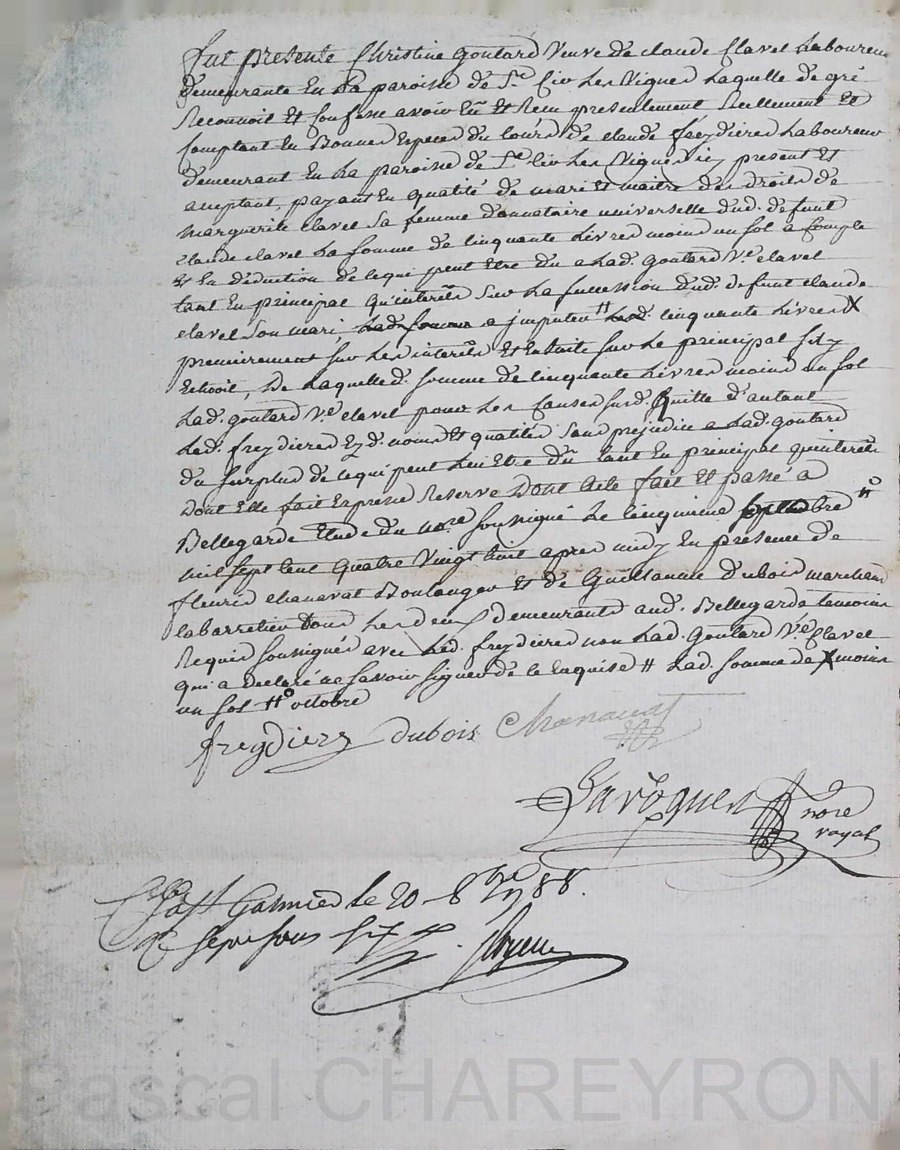 Fut presente Christine Goutard Veuve de claude Clavel Laboureur
demeurante En La paroisse de St Cir Les Vignes Laquelle de gré
Reconnoit Et Confesse avoir Eu Et Recu presentement Reellement Et
Comptant En Bonnes Especes du Cours de claude freydiere Laboureur
demeurant En La paroisse de St Cir Les Vignes icy present Et
acceptant, payant En qualité de mari Et maitre des Droits de
Marguerite Clavel Sa femme donnataire universelle dud. defunt
Claude Clavel La Somme de Cinquante Livres moins un sol a Compte
Et En déduction de ce qui peut Etre du a Lad. Goutard Ve. clavel
tant En principal qu'interêts Sur La succession dud. defunt claude
clavel Son mari, Lad. Somme a jmputer # Lad. Cinquante Livres X
premierement sur Les interêts Et Ensuite sur Le principal sil y
Echoit, De Laquelle d. somme de Cinquante Livres moins un sol
Lad. goutard Ve. clavel pour Les Causes susd. Quitte d'autant
Led. freydiere Ezd. noms Et qualités Sans prejudice a Lad. goutard
du surplus de ce qui peut Lui Etre dû tant En principal qu'interets
Dont Elle fait Expresse Reserve Dont Acte fait Et passé a
Bellegarde Etude du nore. soussigné Le Cinquieme septembre #o
mil sept Cent quatre Vingt huit apres midy En presence de
fleurie chanavat Boulanger Et de Guillaume dubois marchand
Cabarretier tous Les deux demeurants aud. Bellegarde temoins
Requis soussignés avec Led. freydiere non Lad. Goutard Ve. Clavel
qui a declaré ne savoir signer de ce Enquise # Lad. somme de X moins
un sol #o octobre
freydiere dubois Chanavat
Laroque nore
royal
a Chast Galmier le 20 8bre 1788.
R sept sous six d.